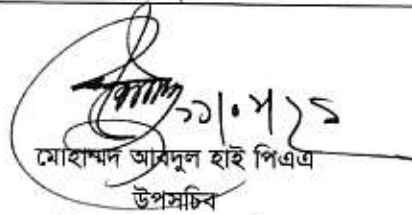 মোহাম্মদ আবদুল হাই পিএএ
উপসচিব